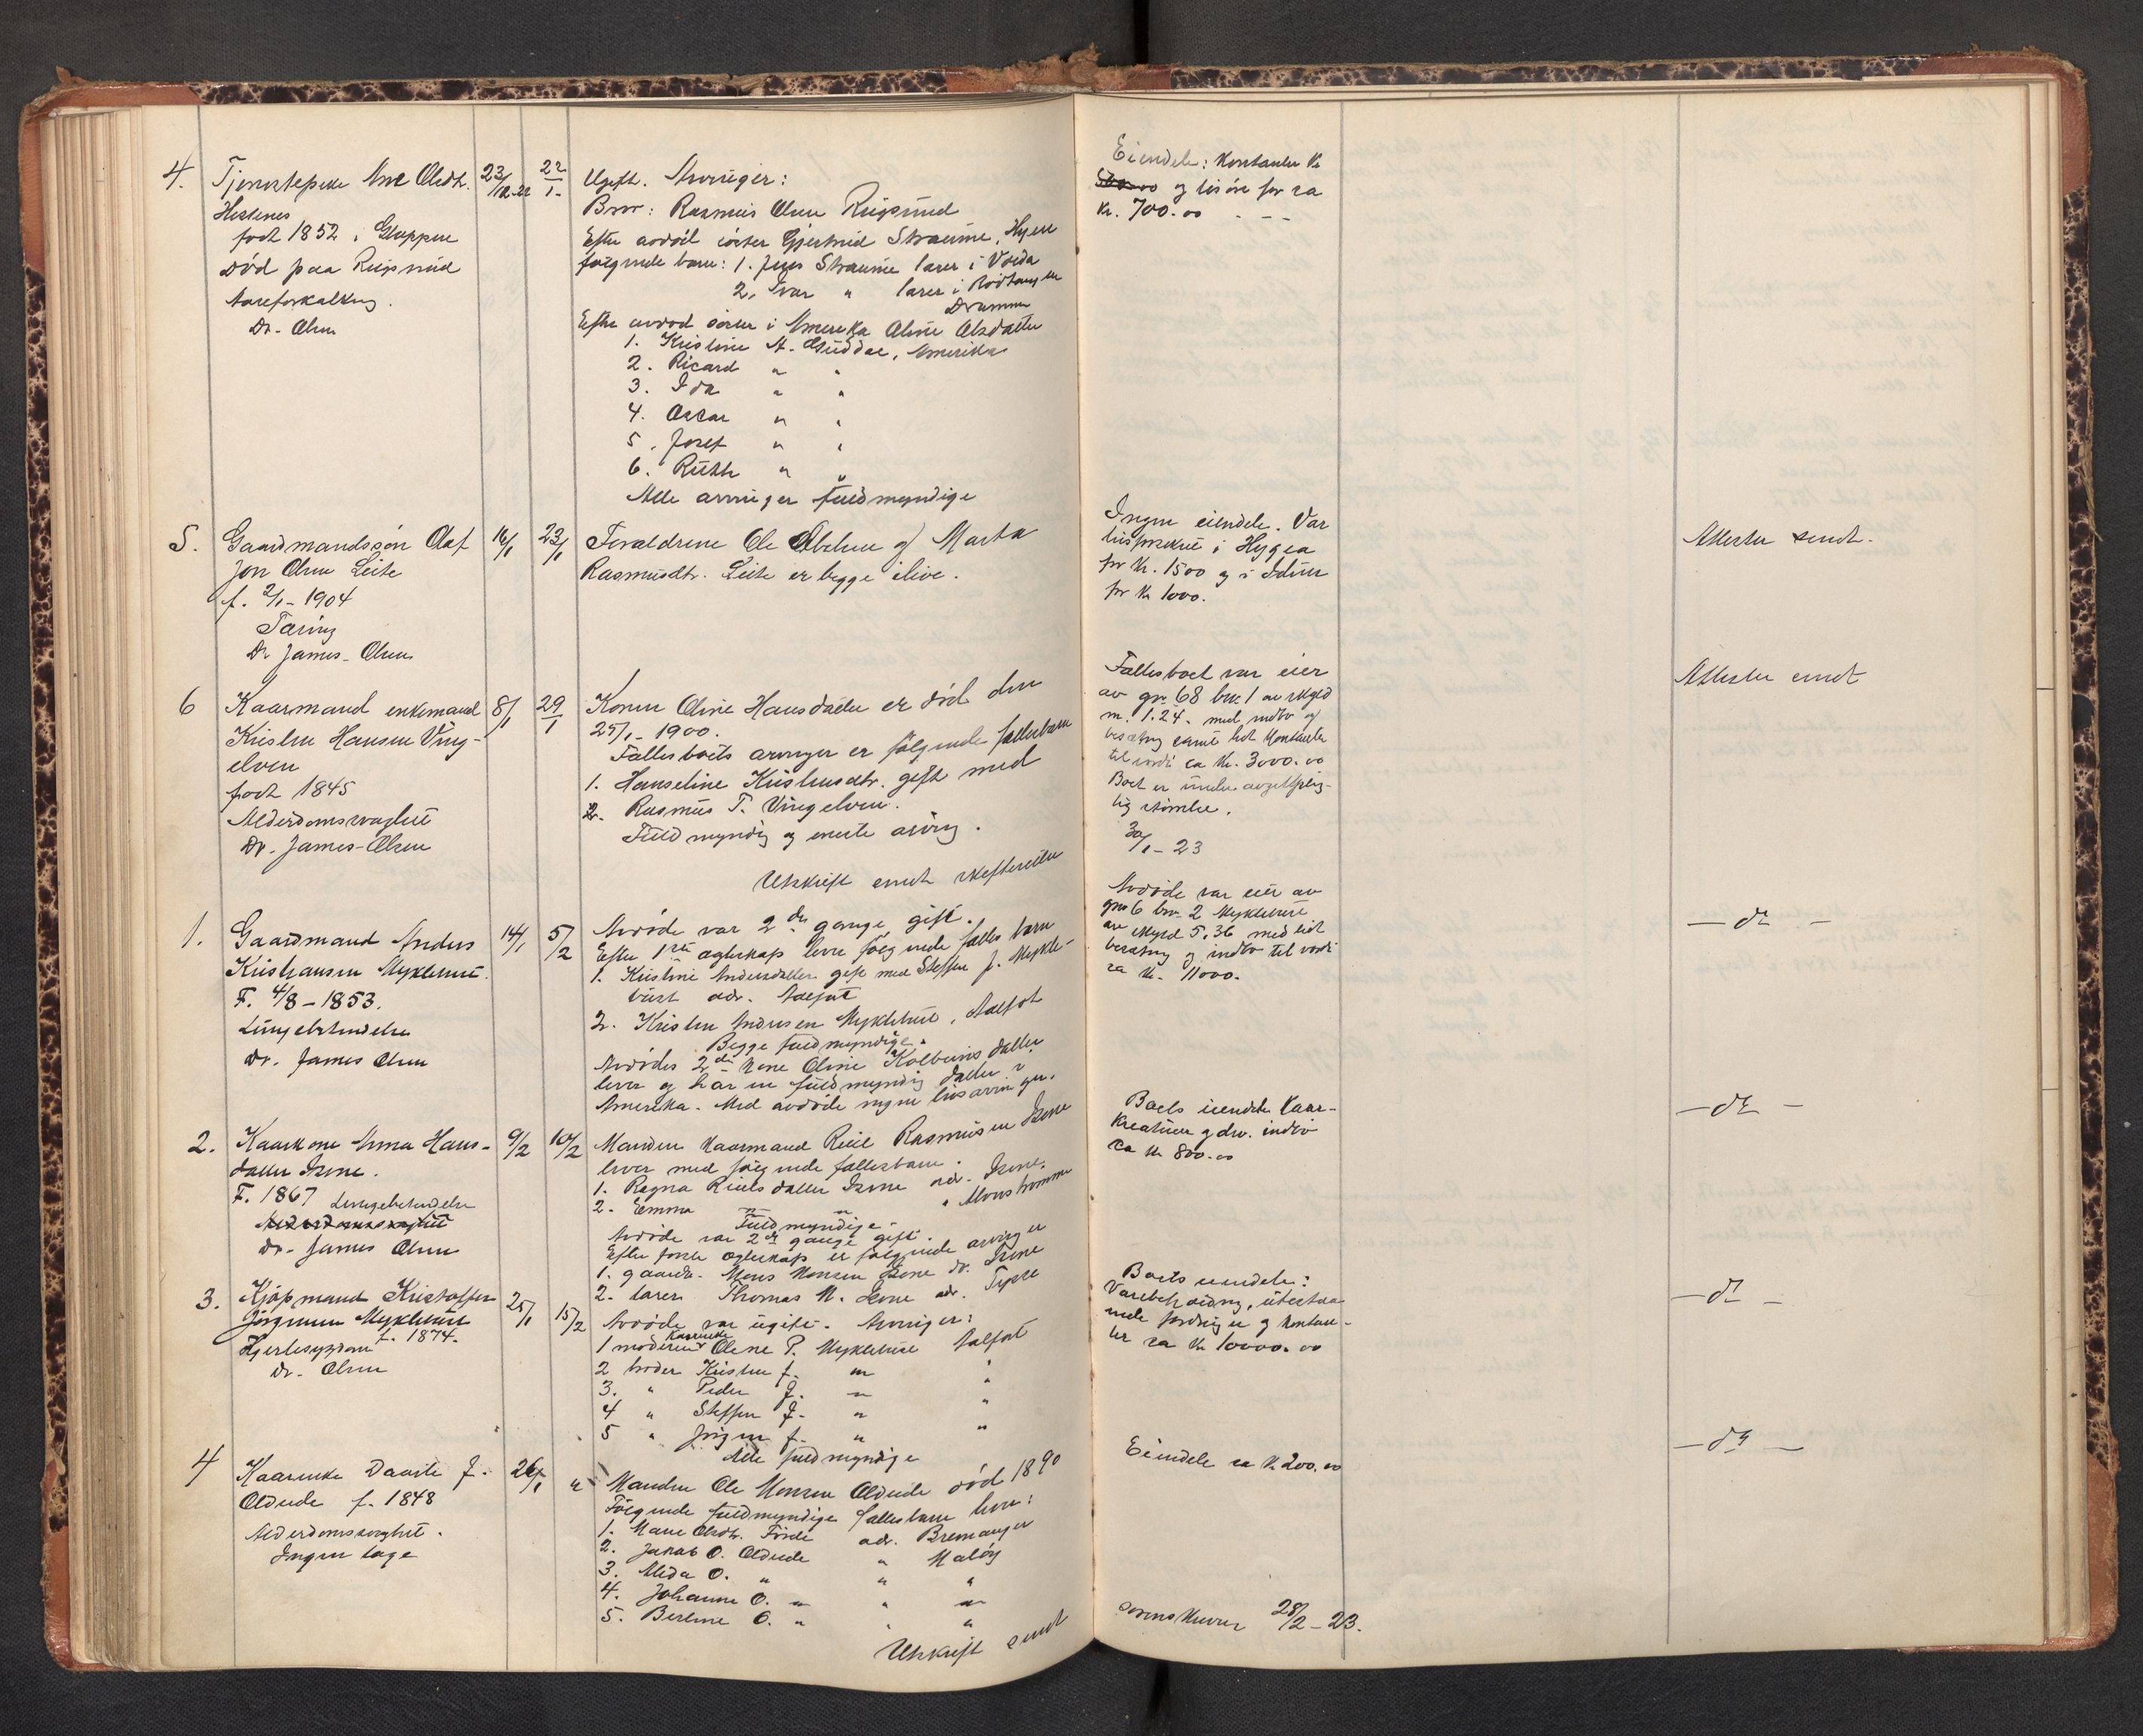 4.
Tjenestepike Ane Olsdt.
Hestenes
født 1852 i Gloppen
død paa Rugsund
Aareforkalkng.
Dr. Olsen
23/12-22
22/1-
Ugift. Arvinger:
Bror: Rasmus Olsen Rugsund
Efter avdöd söster Gjertrud Straume, Hyen
følgende barn: 1. Jens Straume lærer i Volda
2. Ivar " lærer i
Drammen
Efter avdød söster i Amerika Oline Olsdatter
1. Kristine A. Guddal, Amerika
2. Ricard " "
3. Ida " "
4. Oscar " "
5. Josef " "
6. Ruth " "
Alle arvinger fuldmyndige
Eiendele: Kontanter Kr
og lösöre for ca
Kr. 700.00
5.
Gaardmandssön Olaf
Jon Olsen Leite
f. 2/1-1904
Tæring
Dr James-Olsen
16/1
23/1
Forældrene Ole Abelsen og Marta
Rasmusdtr. Leite er begge ilive.
Ingen eiendele. Var
livsforsikret i Hygea
for Kr. 1500 og i Idun
for Kr 1000.
Attester sendt.
6
Kaarmand enkemand
Kristen Hansen Ving-
elven
født 1845
Alderdomssvaghet
Dr. James-Olsen
8/1
29/1
Konen Oline Hansdatter er död den
25/1-1900.
Fællesboets arvinger er fölgende fællesbarn
1. Hanseline Kristensdtr. gift med
2. Rasmus T. Vingelven.
Fuldmyndig og eneste arving.
Utskrift sendt skifteretten
Fællesboet var eier
av gnr 68 brnr 1 av skyld
m. 1.24. med indbo og
besætng samt lidt kontanter
til værdi ca Kr. 3000.00
Boet er under avgiftsplig-
tig störrelse.
30/1-23
Attester sendt
1.
Gaardmand Anders
Kristiansen Myklebust.
F. 4/8-1853.
Lungebetændelse
Dr. James Olsen
14/1
5/2
Avdöde var 2 den gange gift.
Efter 1ste egteskap lever følgende fælles barn
1. Kristine Andersdatter gift med Steffen J. Mykle-
bust adr. Aalfot
2. Kristen Andersen Myklebust, Aalfot
Begge fuldmyndige.
Avdödes 2den kone Oline Kolbeinsdatter
lever og har en fuldmyndig datter i
Amerika. Med avdöde ingen livsarvinger.
Avdöde var eier av
gnr 6 brnr 2 Myklebust
av skyld 5,36 med lidt
besætng og indbo til værdi
ca Kr. 11000.
— do —
2.
Kaarkone Anna Hans-
datter Isene.
F. 1867 Lungebetændelse
Alderdomssvaghet
Dr. James Olsen
9/2
10/2
Manden Kaarmand Reiel Rasmussen Isene
lever med følgende fællesbarn.
1. Ragna Reielsdatter Isene adr. Isene.
2. Emma " " "
Fuldmyndige
Avdöde var 2 gange gift.
Efter förste egteskap er følgende arvinger
1. gaardbr. Mons Monsen Isene do. Isene
2. lærer Thomas M. Isene adr.
Boets eiendele kaar-
kreaturer og div. indbo
ca Kr 800.00
— do —
3.
Kjöpmand Kristoffer
Jörgensen Myklebust
f. 1874.
Hjertesygdom
Dr. Olsen
25/1
15/2
Avdöde var ugift. Arvinger:
1 moderen Kaarenke Oline P. Myklebust Aalfot
2 broder Kristen J. " "
3. " Peder J. " "
4 " Steffen J. " "
5 " Jörgen J. " "
Alle fuldmyndige
Boets eiendele:
Varebeholdng, utestaa-
ende fordringer og kontan-
ter ca Kr 10000.00
— do —
4
Kaarenke Daarte J.
Oldeide f. 1848
Alderdomssvaghet.
Ingen læge
26/1
"
Manden Ole Monsen Oldeide död 1890
Følgende fuldmyndige fællesbarn lever:
1. Mari Olsdtr. Förde adr. Bremanger
2. Jakob O. Oldeide " Maløy
3. Alida O. " " "
4. Johanne O. " " "
5. Berline O. " " "
Utskrift sendt
Eiendele ca Kr 200.00
— do —
sorenskriver 28/2-23.